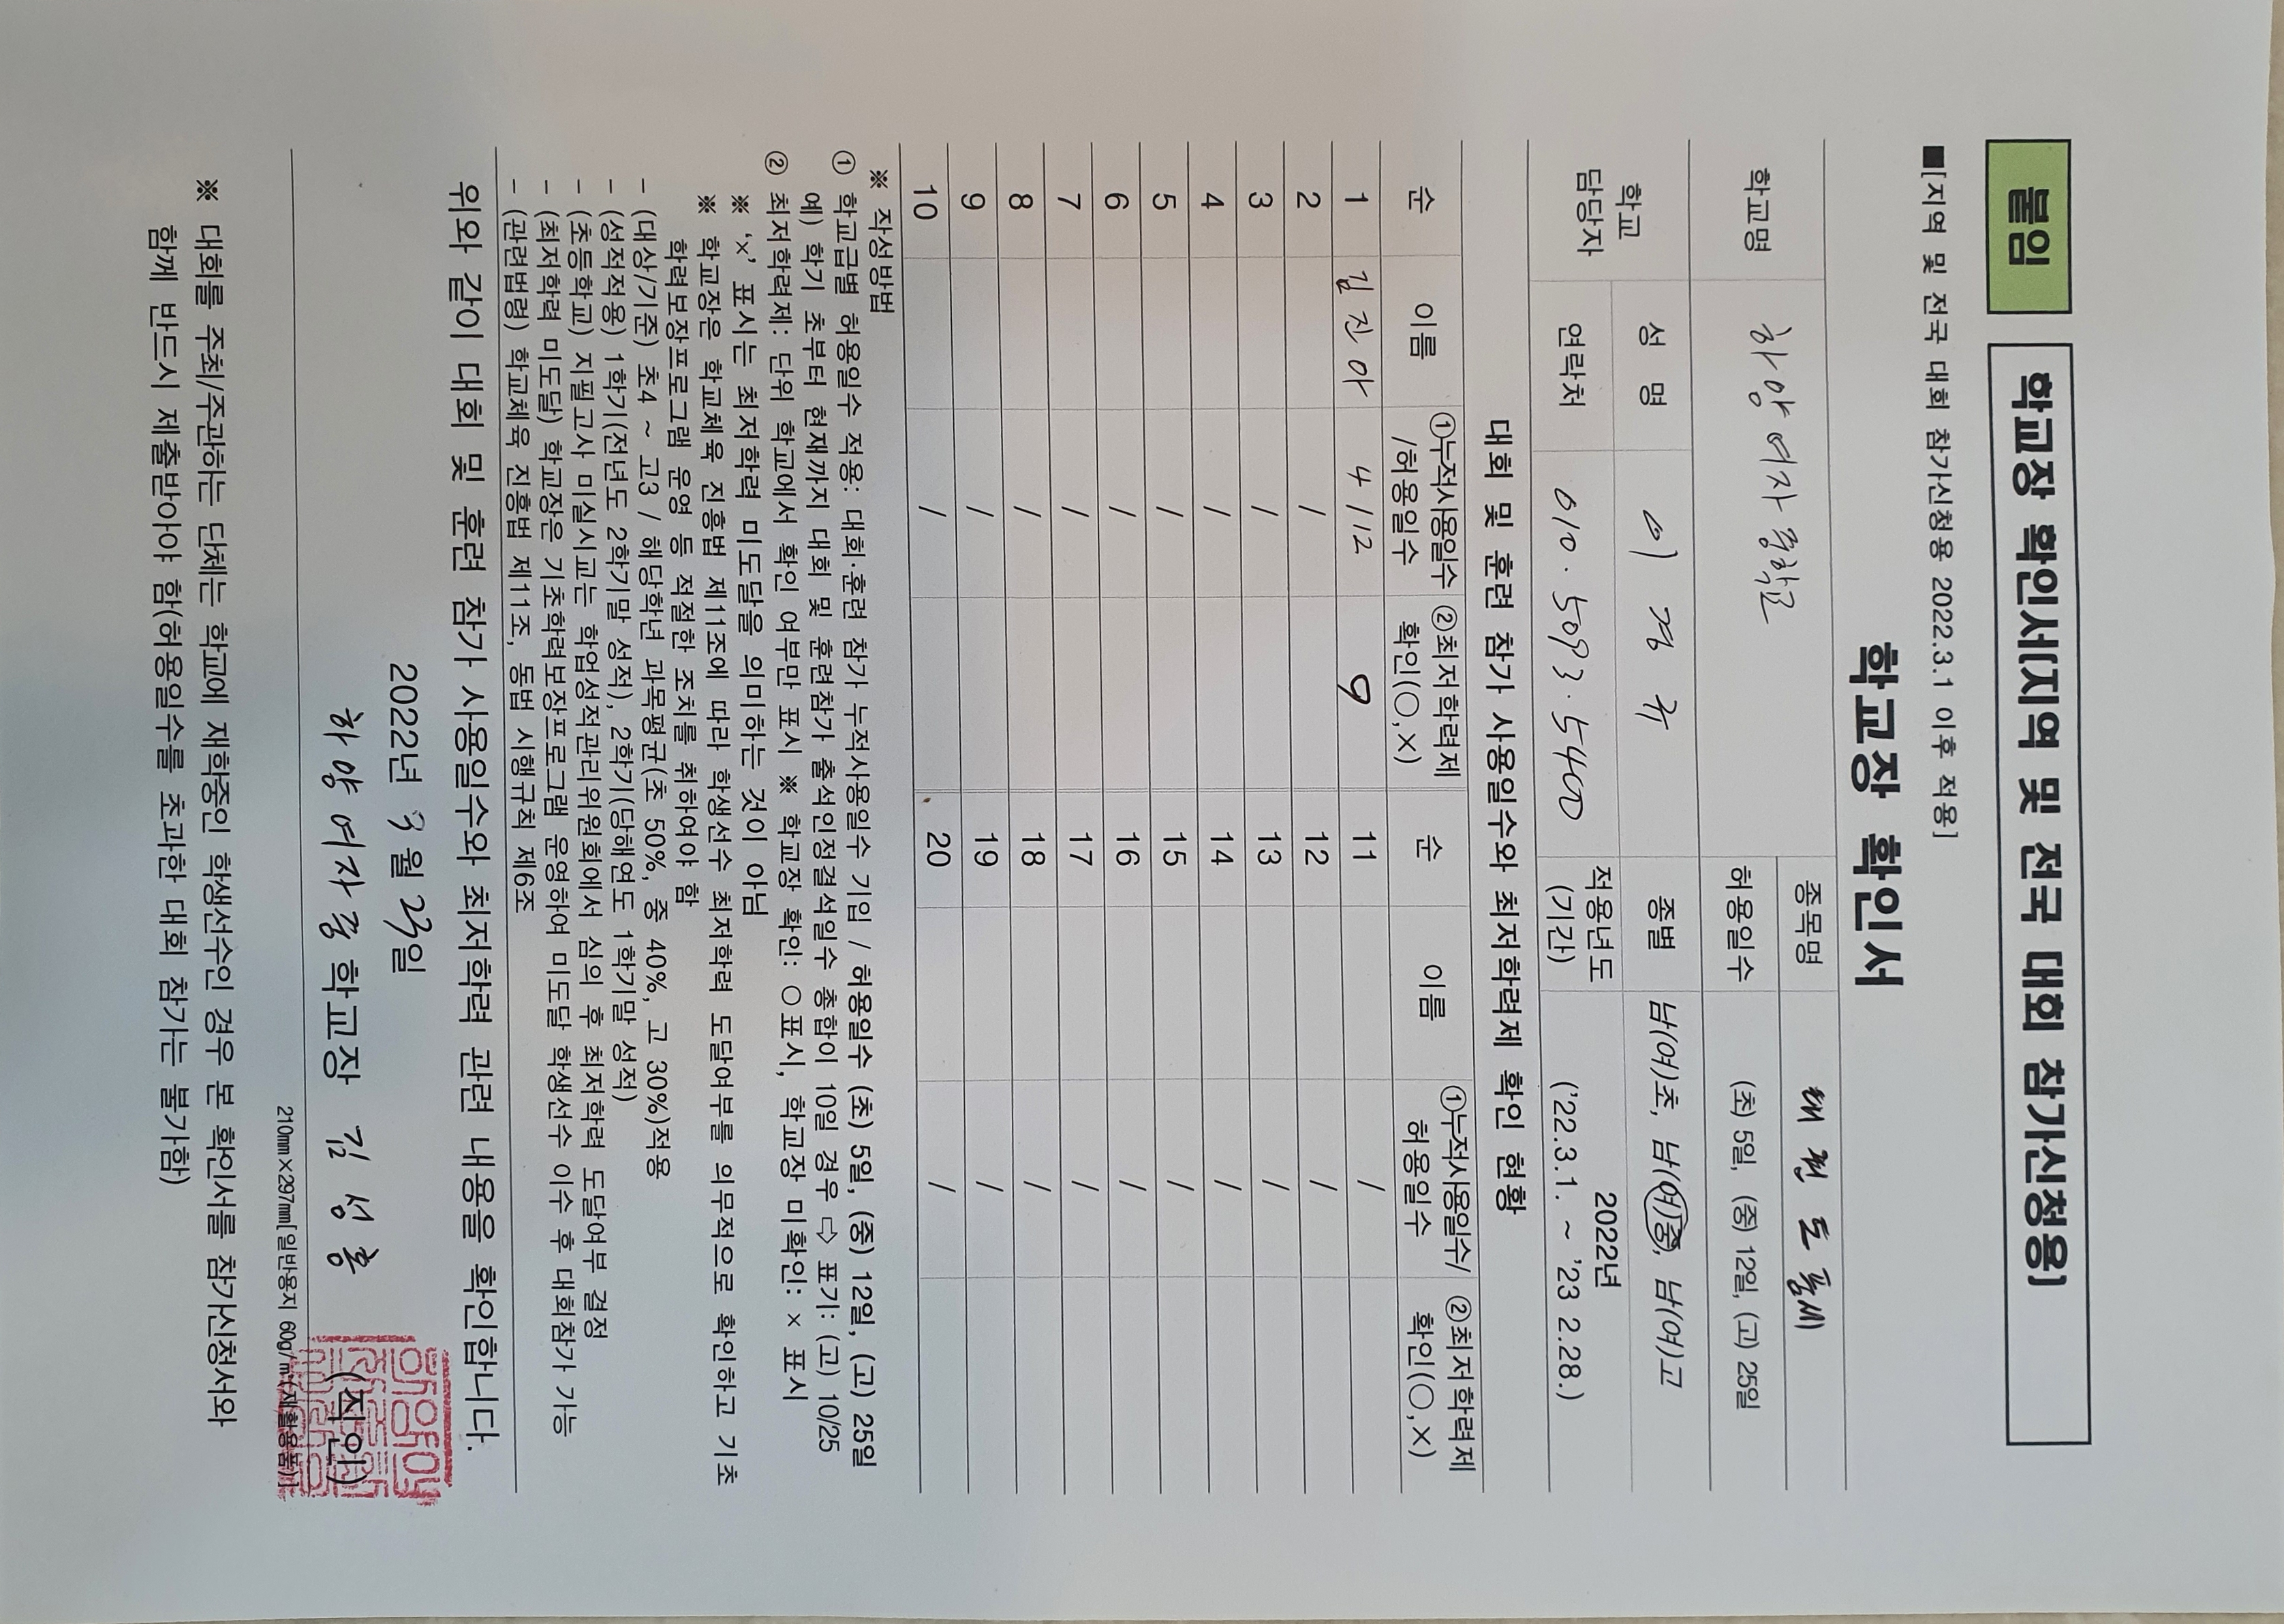 붙임 학교장 확인서[지역 및 전국 대회 참가신청용]
■[지역 및 전국 대회 참가신청용 2022.3.1 이후 적용]
학교장 확인서
학교명 하양여자중학교 종목명 태권도품새
허용일수 (초) 5일, (중) 12일, (고) 25일
학교 담당자 성 명 이경규 종별 남(여)초, 남(여)중, 남(여)고
연락처 010.5093.5400 적용년도 (기간) 2022년 ('22.3.1. ~ '23 2.28.)
대회 및 훈련 참가 사용일수와 최저학력제 확인 현황
순 이름 ①누적사용일수 /허용일수 ②최저학력제 확인(○,×) 순 이름 ①누적사용일수/ 허용일수 ②최저학력제 확인(○,×)
1 김진아 4/12 ○ 11 /
2 / 12 /
3 / 13 /
4 / 14 /
5 / 15 /
6 / 16 /
7 / 17 /
8 / 18 /
9 / 19 /
10 / 20 /
※ 작성방법
① 학교급별 허용일수 적용: 대회·훈련 참가 누적사용일수 기입 / 허용일수 (초) 5일, (중) 12일, (고) 25일
예) 학기 초부터 현재까지 대회 및 훈련참가 출석인정결석일수 총합이 10일 경우 ⇨ 표기: (고) 10/25
② 최저학력제: 단위 학교에서 확인 여부만 표시 ※ 학교장 확인: ○표시, 학교장 미확인: × 표시
※ '×' 표시는 최저학력 미도달을 의미하는 것이 아님
※ 학교장은 학교체육 진흥법 제11조에 따라 학생선수 최저학력 도달여부를 의무적으로 확인하고 기초
학력보장프로그램 운영 등 적절한 조치를 취하여야 함
- (대상/기준) 초4 ~ 고3 / 해당학년 과목평균(초 50%, 중 40%, 고 30%)적용
- (성적적용) 1학기(전년도 2학기말 성적), 2학기(당해연도 1학기말 성적)
- (초등학교) 지필고사 미실시교는 학업성적관리위원회에서 심의 후 최저학력 도달여부 결정
- (최저학력 미도달) 학교장은 기초학력보장프로그램 운영하여 미도달 학생선수 이수 후 대회참가 가능
- (관련법령) 학교체육 진흥법 제11조, 동법 시행규칙 제6조
위와 같이 대회 및 훈련 참가 사용일수와 최저학력 관련 내용을 확인합니다.
2022년 3월 23일
하양여자중학교장 김성홍 (직인)
210㎜×297㎜[일반용지 60g/㎡(재활용품)]
※ 대회를 주최/주관하는 단체는 학교에 재학중인 학생선수인 경우 본 확인서를 참가신청서와
함께 반드시 제출받아야 함(허용일수를 초과한 대회 참가는 불가함)